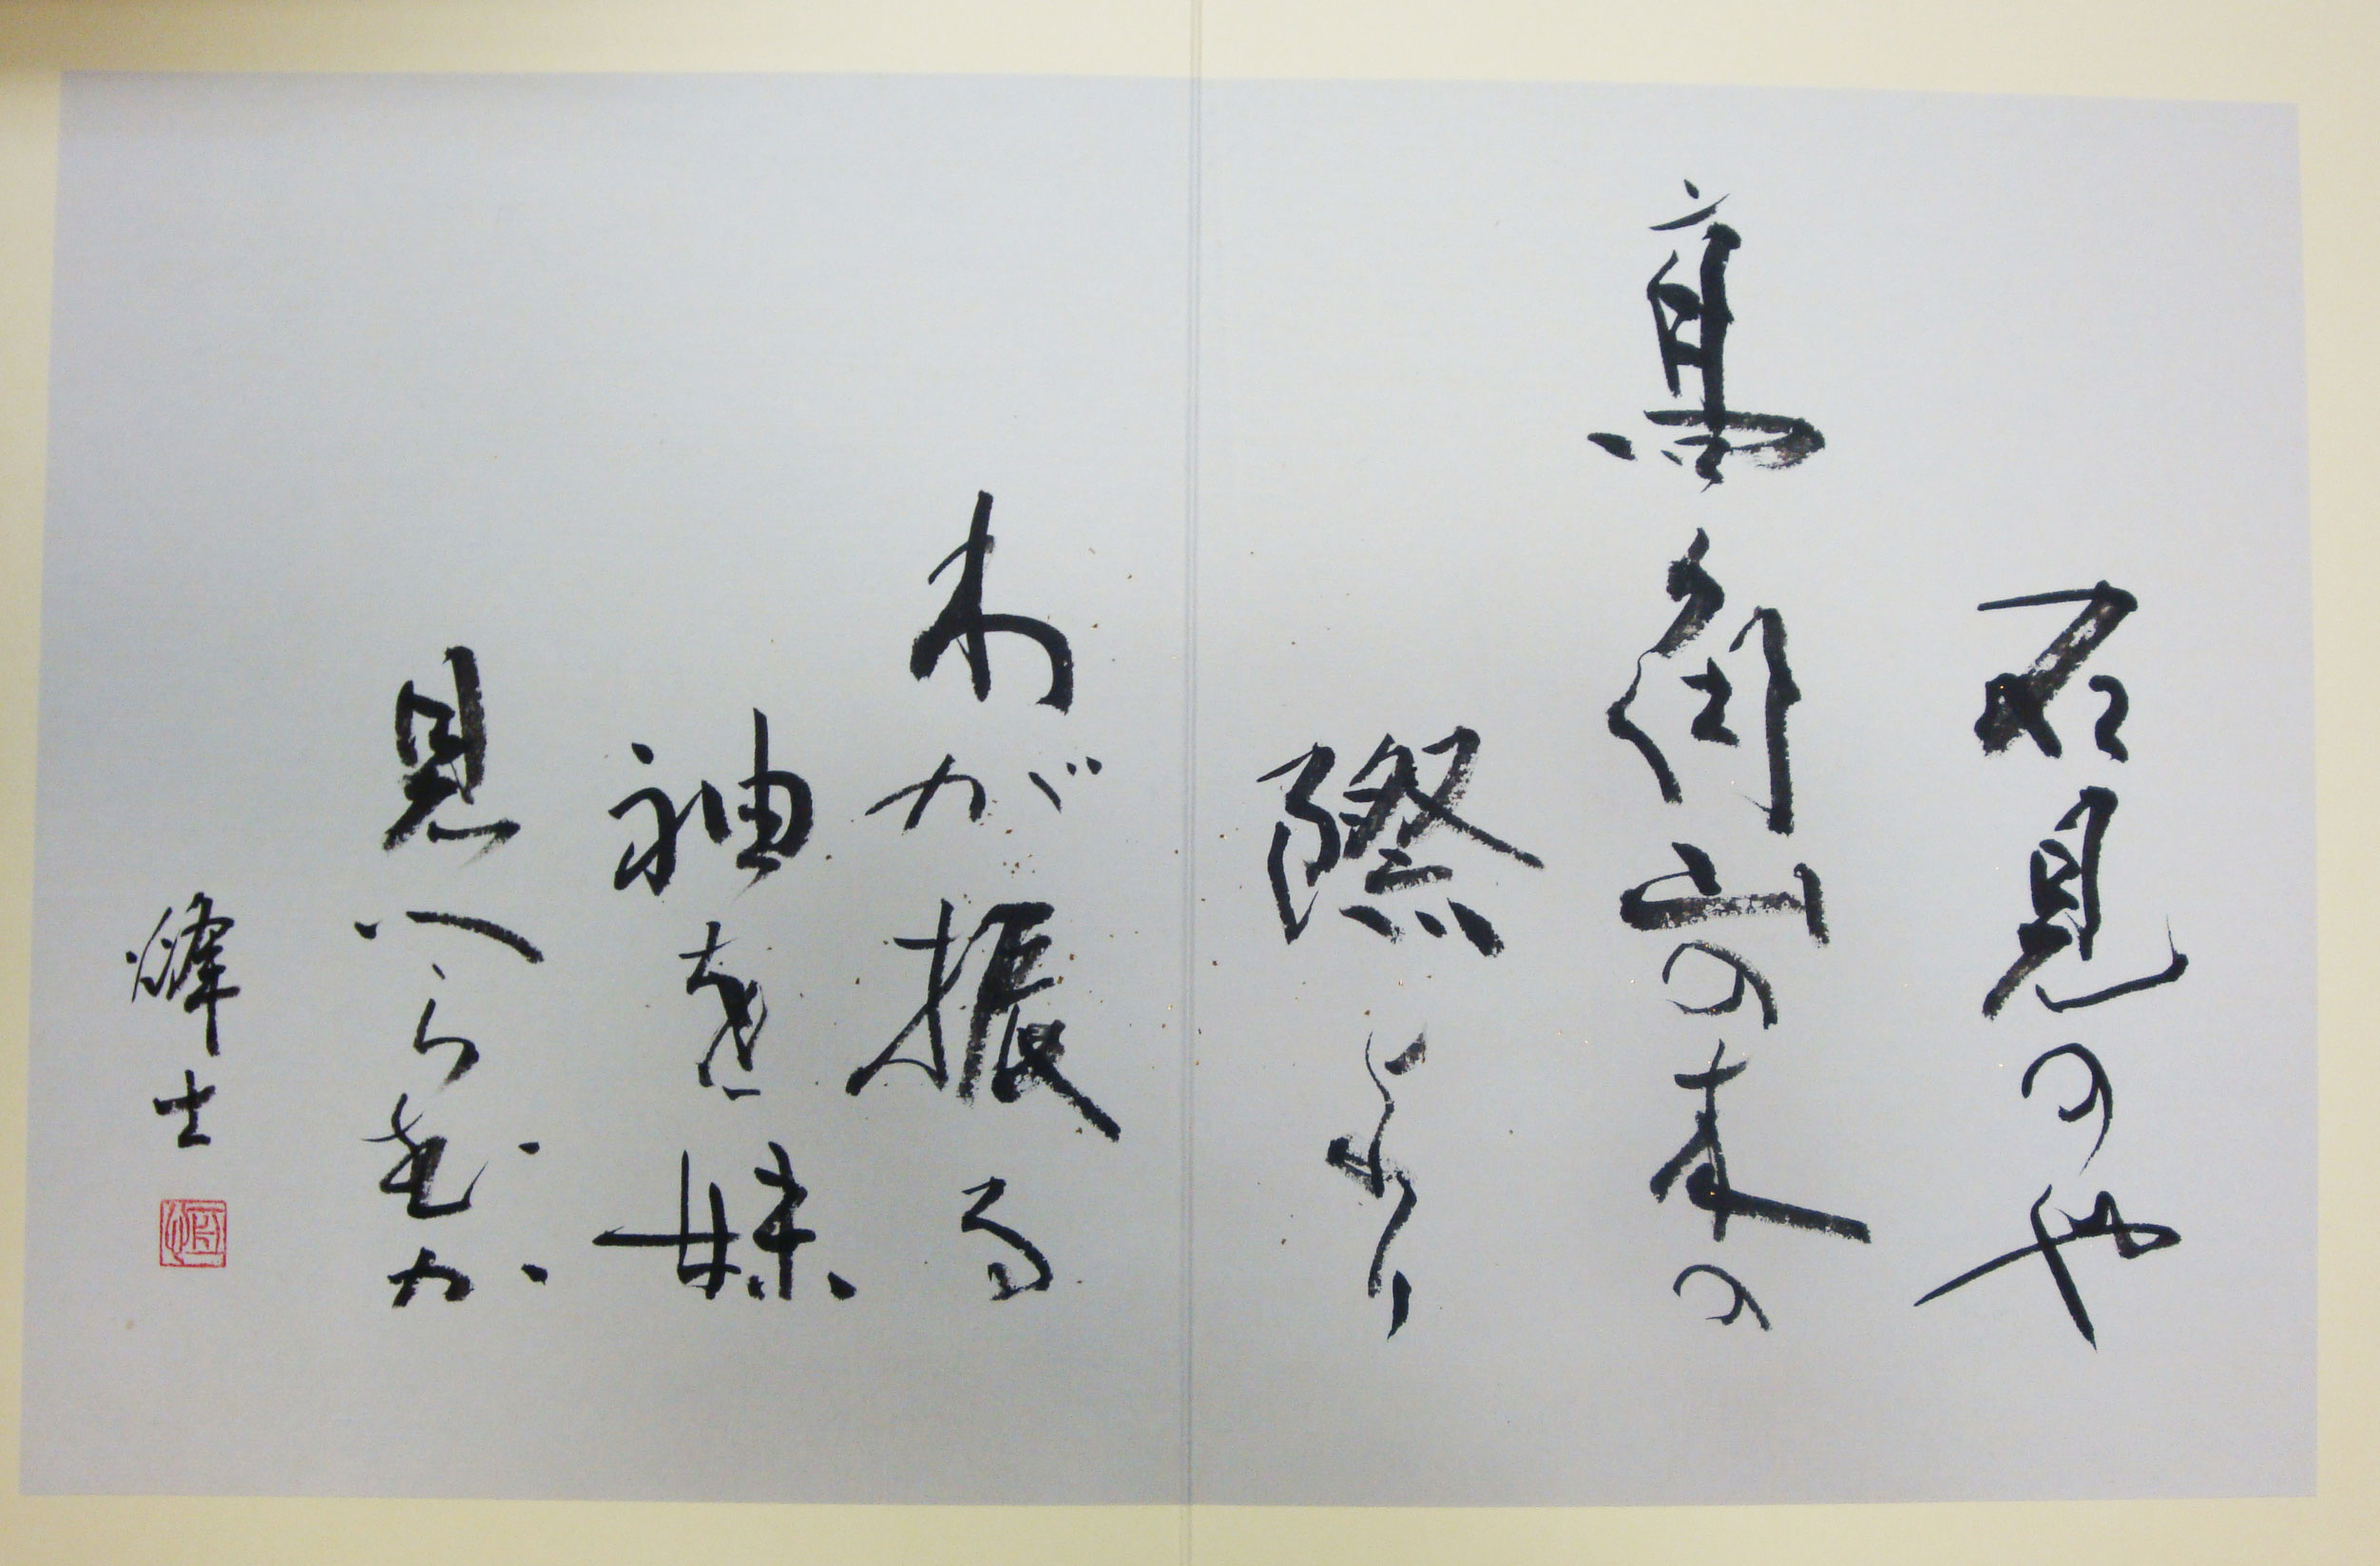 石見のや
高角山の木の
際より
わが振る
袖を妹
見つらむか